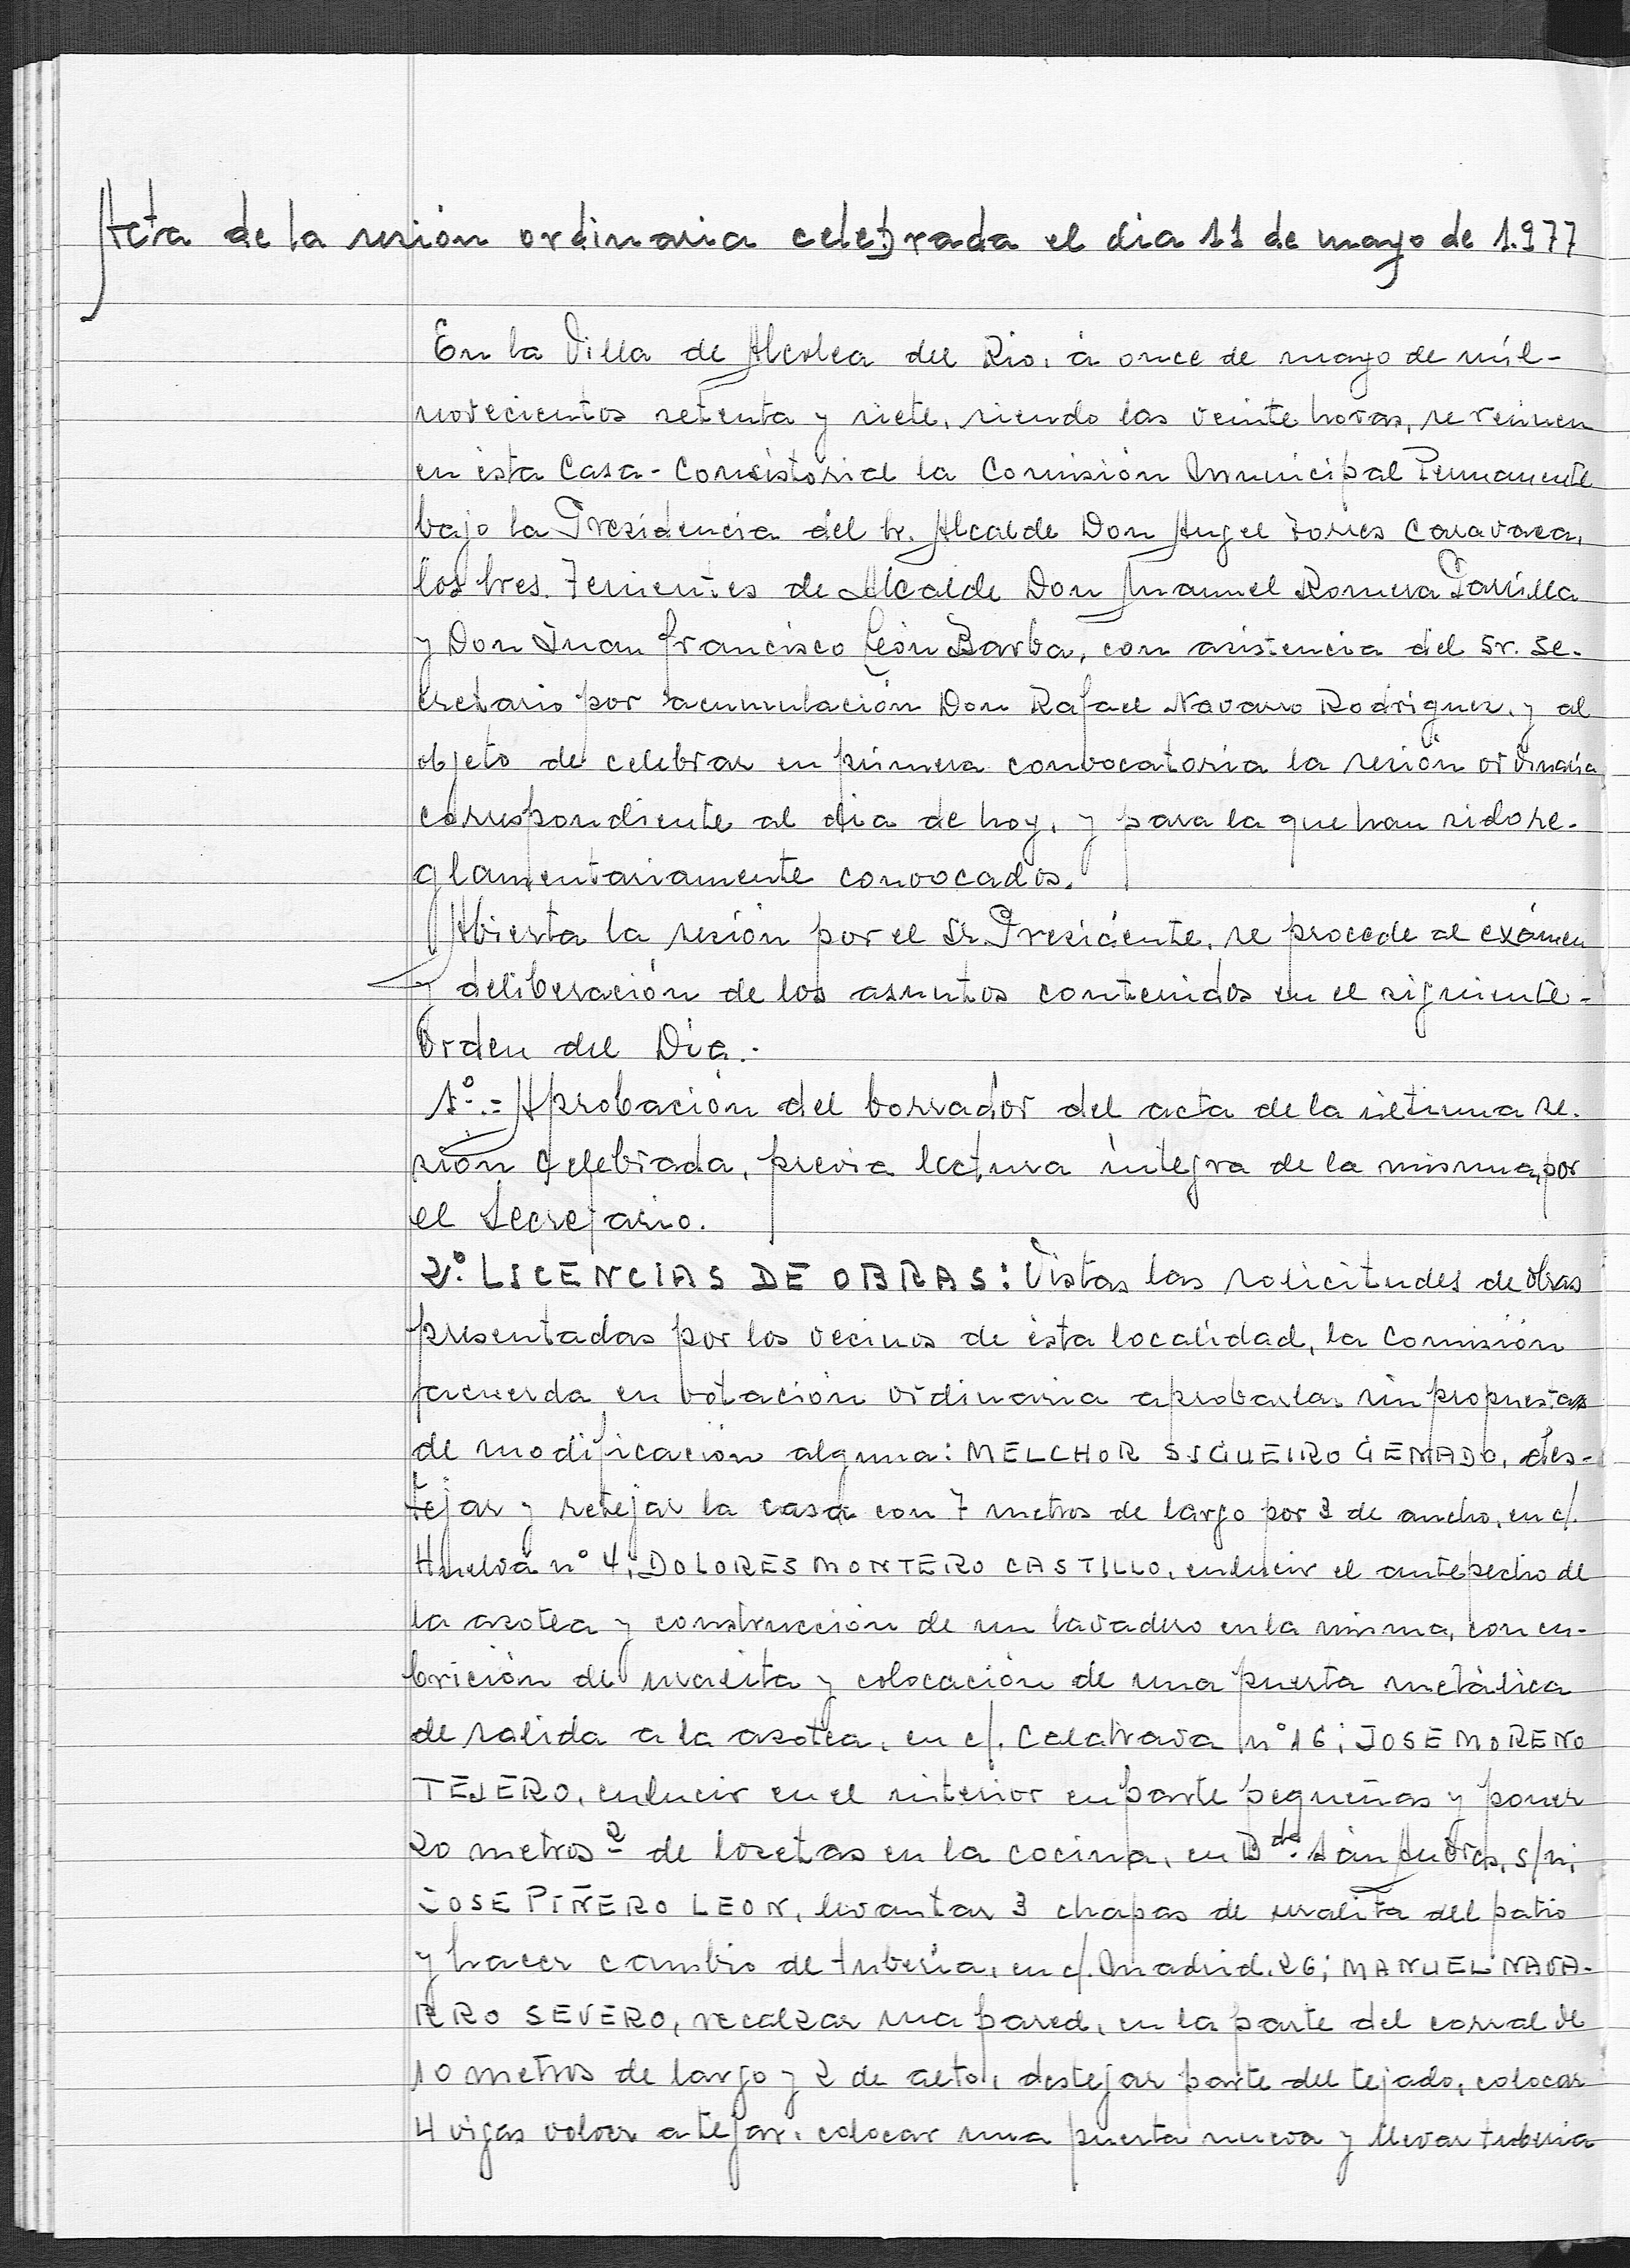 Acta de la sesión ordinaria celebrada el dia 11 de mayo de 1.977
En la Villa de Alcolea del Rio, á once de mayo de mil-
novecientos setenta y siete, siendo las veinte horas, se reunen
en ésta Casa-Consistorial la Comisión Municipal Permanente
bajo la Presidencia del Sr. Alcalde Don Angel Torres Caravaca,
los Sres. Tenientes de Alcalde Don Manuel Romera Parrilla
y Don Juan Francisco León Barba, con asistencia del Sr. Se-
cretario por acumulación Don Rafael Navarro Rodriguez, y al
objeto de celebrar en primera convocatoria la sesión ordinaria
correspondiente al dia de hoy, y para la que han sido re-
glamentariamente convocados.
Abierta la sesión por el Sr. Presidente, se procede al exámen
y deliberación de los asuntos contenidos en el siguiente-
Orden del Dia.-
1º.= Aprobación del borrador del acta de la última se-
sión celebrada, previa lectura integra de la misma, por
el Secretario.
2º. LICENCIAS DE OBRAS: Vistas las solicitudes de obras
presentadas por los vecinos de ésta localidad, la Comisión
acuerda en votación ordinaria aprobarlas sin propuestas
de modificación alguna: MELCHOR SIGUEIRO GEMADO, des-
tejar y retejar la casa con 7 metros de largo por 3 de ancho, en c/.
Huelva nº 4; DOLORES MONTERO CASTILLO, enlucir el antepecho de
la azotea y construcción de un lavadero en la misma, con cu-
brición de uralita y colocación de una puerta metálica
de salida a la azotea, en c/. Calatrava nº 16; JOSE MORENO
TEJERO, enlucir en el interior en parte pequeñas y poner
20 metros² de losetas en la cocina, en Bda. San Andrés, s/n;
JOSE PIÑERO LEON, levantar 3 chapas de uralita del patio
y hacer cambio de tuberia, en c/. Madrid, 26; MANUEL NAVA-
RRO SEVERO, recalzar una pared, en la parte del corral de
10 metros de largo y 2 de alto, destejar parte del tejado, colocar
4 vigas volver a tejar, colocar una puerta nueva y llevar tuberia